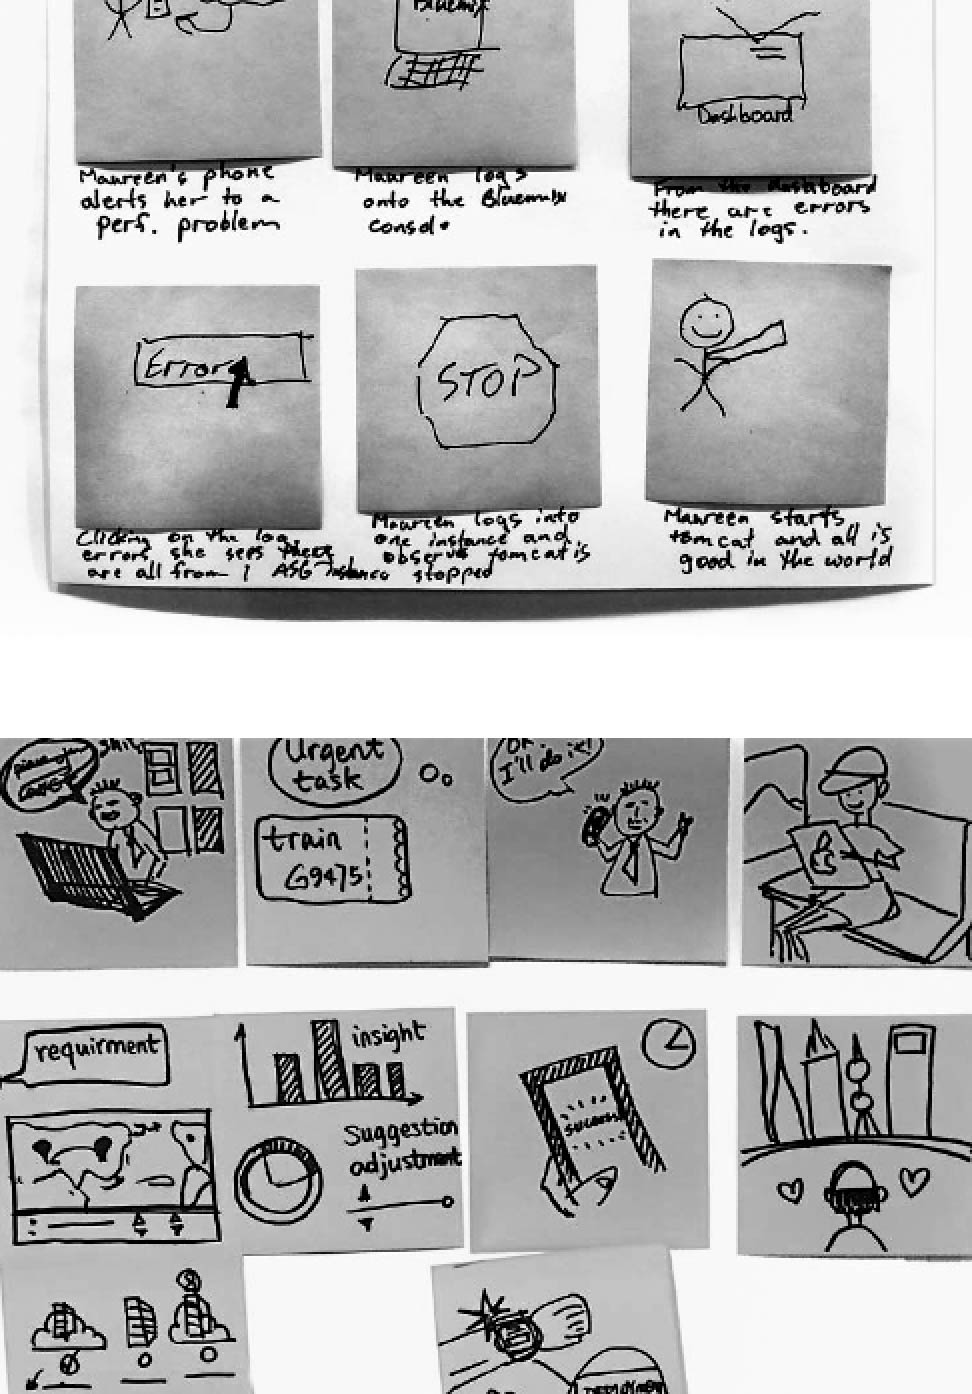 Bluemix
Dashboard
Maureen's phone
alerts her to a
perf. problem
Maureen logs
onto the Bluemix
console
From the dashboard
there are errors
in the logs.
Errors
STOP
Clicking on the log
errors she sees these
are all from 1 ASG instance
Maureen logs into
one instance and
observe tomcat is
stopped
Maureen starts
tomcat and all is
good in the world
shit
Urgent
task
train
G9475
I'll do it!
requirment
insight
Suggestion
adjustment
success